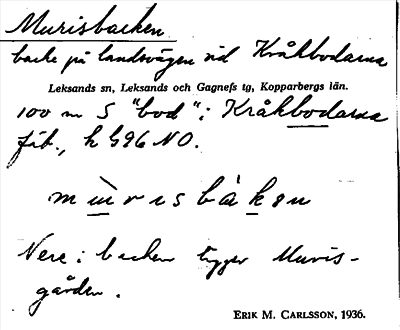 Murisbacken
backe på landsvägen vid Kråkbodarna
Leksands sn, Leksands och Gagnefs tg, Kopparbergs län.
100 m S "bod" i Kråkbodarna
fäb., k 596 NO.
mùrisbàkən
Nere i backen ligger Muris-
gården.
ERIK M. CARLSSON, 1936.